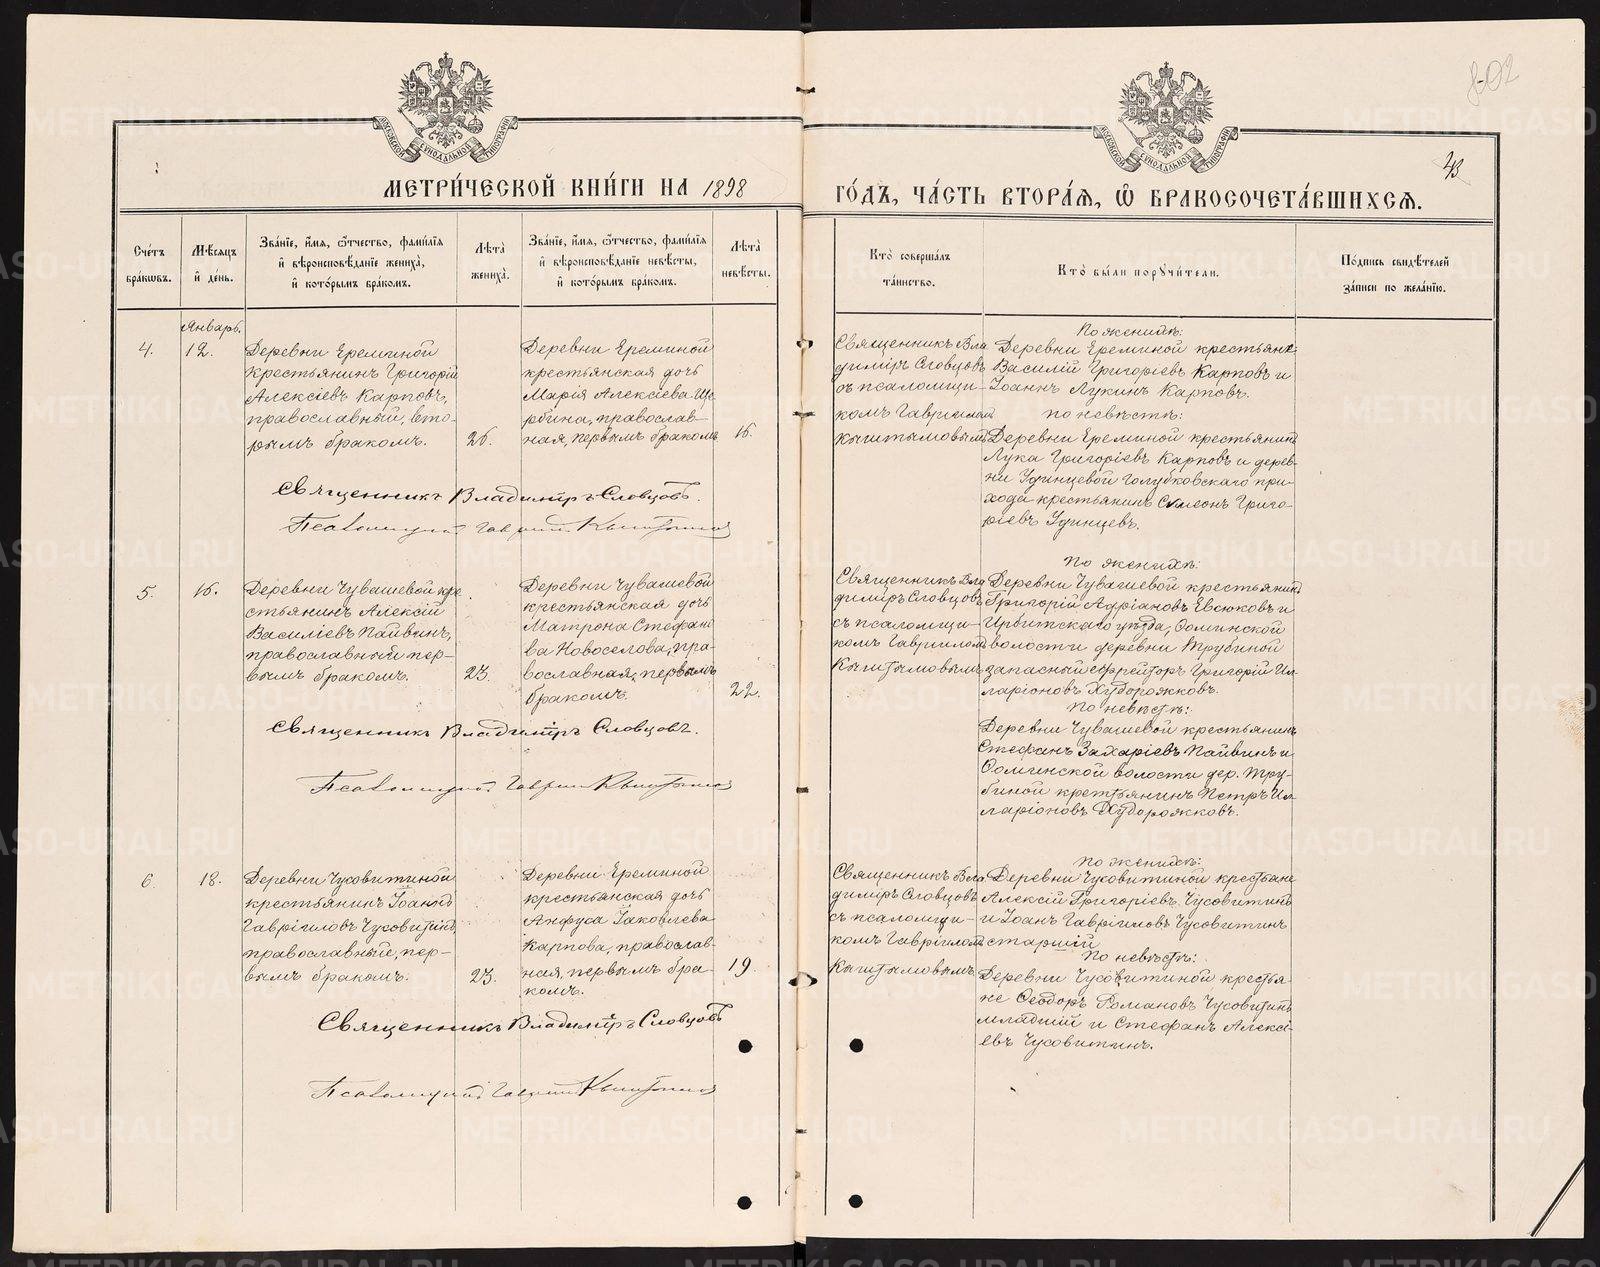 802
43
МЕТРИ́ЧЕСКОЙ КНИ́ГИ НА 1898
ГО́ДЪ, ЧА́СТЬ ВТОРА́Ѧ, Ѽ БРАКОСОЧЕТА́ВШИХСѦ.
Сче́тъ бра́кѡвъ.
Мѣ́сѧцъ и҆ де́нь.
Зва́нїе, и҆́мѧ, ѻ҆́тчество, фами́лїѧ и҆ вѣроисповѣ́данїе жениха̀, и҆ кото́рымъ бра́комъ.
Лѣ́та жениха̀.
Зва́нїе, и҆́мѧ, ѻ҆́тчество, фами́лїѧ и҆ вѣроисповѣ́данїе невѣ́сты, и҆ кото́рымъ бра́комъ.
Лѣ́та невѣ́сты.
Кто̀ соверша́лъ та́инство.
Кто̀ бы́ли порꙋчи́тели.
По́дпись свидѣ́телей за́писи по жела́нїю.
Январь.
4.
12.
Деревни Ереминой
крестьянинъ Григорій
Алексіевъ Карповъ,
православный, вто-
рымъ бракомъ.
26.
Деревни Ереминой
крестьянская дочь
Марія Алексіева Ще
рбина, православ-
ная, первымъ бракомъ
16.
Священникъ Вла
димиръ Словцовъ
съ псаломщи-
комъ Гавріиломъ
Кыштымовымъ
По женихѣ:
Деревни Ереминой крестьяне
Василій Григоріевъ Карповъ и
Іоаннъ Лукинъ Карповъ.
по невѣстѣ:
Деревни Ереминой крестьянинъ
Лука Григоріевъ Карповъ и дерев-
ни Удинцевой Голубковскаго при-
хода крестьянинъ Симеонъ Григо-
ріевъ Удинцевъ.
Священникъ Владиміръ Словцовъ.
Псаломщикъ Гавриилъ Кыштымовъ
5.
16.
Деревни Чувашевой кре
стьянинъ Алексій
Василіевъ Пайвинъ,
православный пер-
вымъ бракомъ.
23.
Деревни Чувашевой
крестьянская дочь
Матрона Стефано
ва Новоселова, пра-
вославная, первымъ
бракомъ.
22.
Священникъ Вла
димиръ Словцовъ
съ псаломщи-
комъ Гавриломъ
Кыштымовымъ
По женихѣ:
Деревни Чувашевой крестьянинъ
Григорій Адріановъ Евсюковъ и
Ирбитскаго уѣзда, Фоминской
волости деревни Трубиной
запасный ефрейторъ Григорій Ил-
ларіоновъ Худорожковъ.
По невѣстѣ:
Деревни Чувашевой крестьянинъ
Стефанъ Захаріевъ Пайвинъ и
Фоминской волости дер. Тру-
биной крестьянинъ Петръ Ил-
ларіоновъ Худорожковъ.
Священникъ Владиміръ Словцовъ.
Псаломщикъ Гавриилъ Кыштымовъ
6.
18.
Деревни Чусовитиной
крестьянинъ Іоаннъ
Гавріиловъ Чусовитинъ
православный, пер-
вымъ бракомъ.
23.
Деревни Ереминой
крестьянская дочь
Анфуса Іаковлева
Карпова, православ-
ная, первымъ бра-
комъ.
19.
Священникъ Вла
димиръ Словцовъ
съ псаломщи-
комъ Гавріиломъ
Кыштымовымъ
По женихѣ:
Деревни Чусовитиной крестьяне
Алексій Григоріевъ Чусовитинъ
и Іоаннъ Гавріиловъ Чусовитинъ
старшій
По невѣстѣ:
Деревни Чусовитиной крестья-
не Феодоръ Романовъ Чусовитинъ
младшій и Стефанъ Алексі-
евъ Чусовитинъ.
Священникъ Владиміръ Словцовъ
Псаломщикъ Гавриилъ Кыштымовъ
METRIKI.GASO-URAL.RU